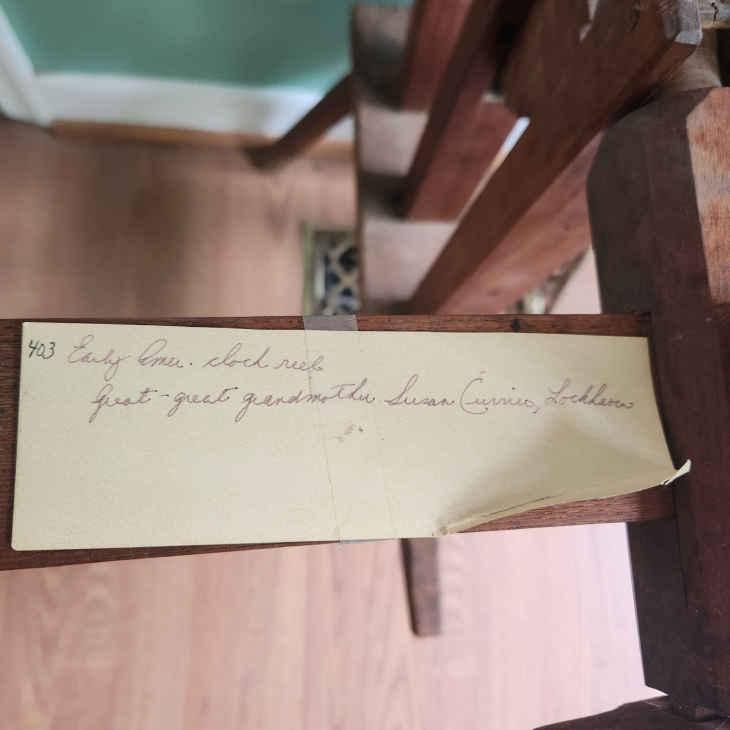 403 Early Amer. clock reel
great-great grandmother Susan Currier, Lockhaven